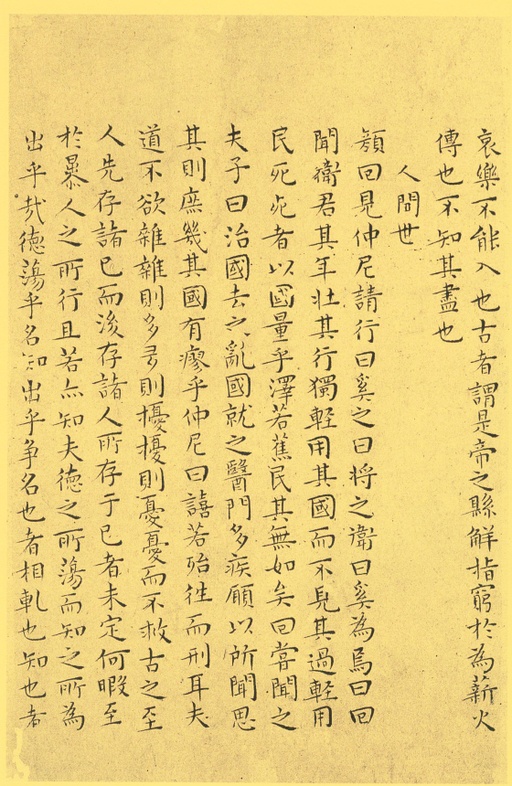 哀樂不能入也古者謂是帝之縣解指窮於為薪火
傳也不知其盡也
人間世
顏回見仲尼請行曰奚之曰將之衛曰奚為焉曰回
聞衛君其年壯其行獨輕用其國而不見其過輕用
民死死者以國量乎澤若蕉民其無如矣回嘗聞之
夫子曰治國去之亂國就之醫門多疾願以所聞思
其則庶幾其國有瘳乎仲尼曰譆若殆往而刑耳夫
道不欲雜雜則多多則擾擾則憂憂而不救古之至
人先存諸己而後存諸人所存于己者未定何暇至
於暴人之所行且若亦知夫德之所蕩而知之所為
出乎哉德蕩乎名知出乎爭名也者相軋也知也者